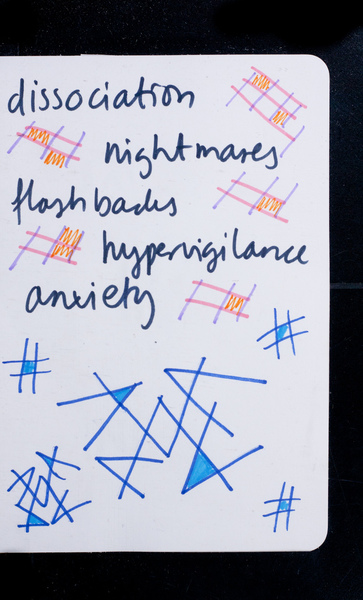 dissociation
nightmares
flashbacks
hypervigilance
anxiety